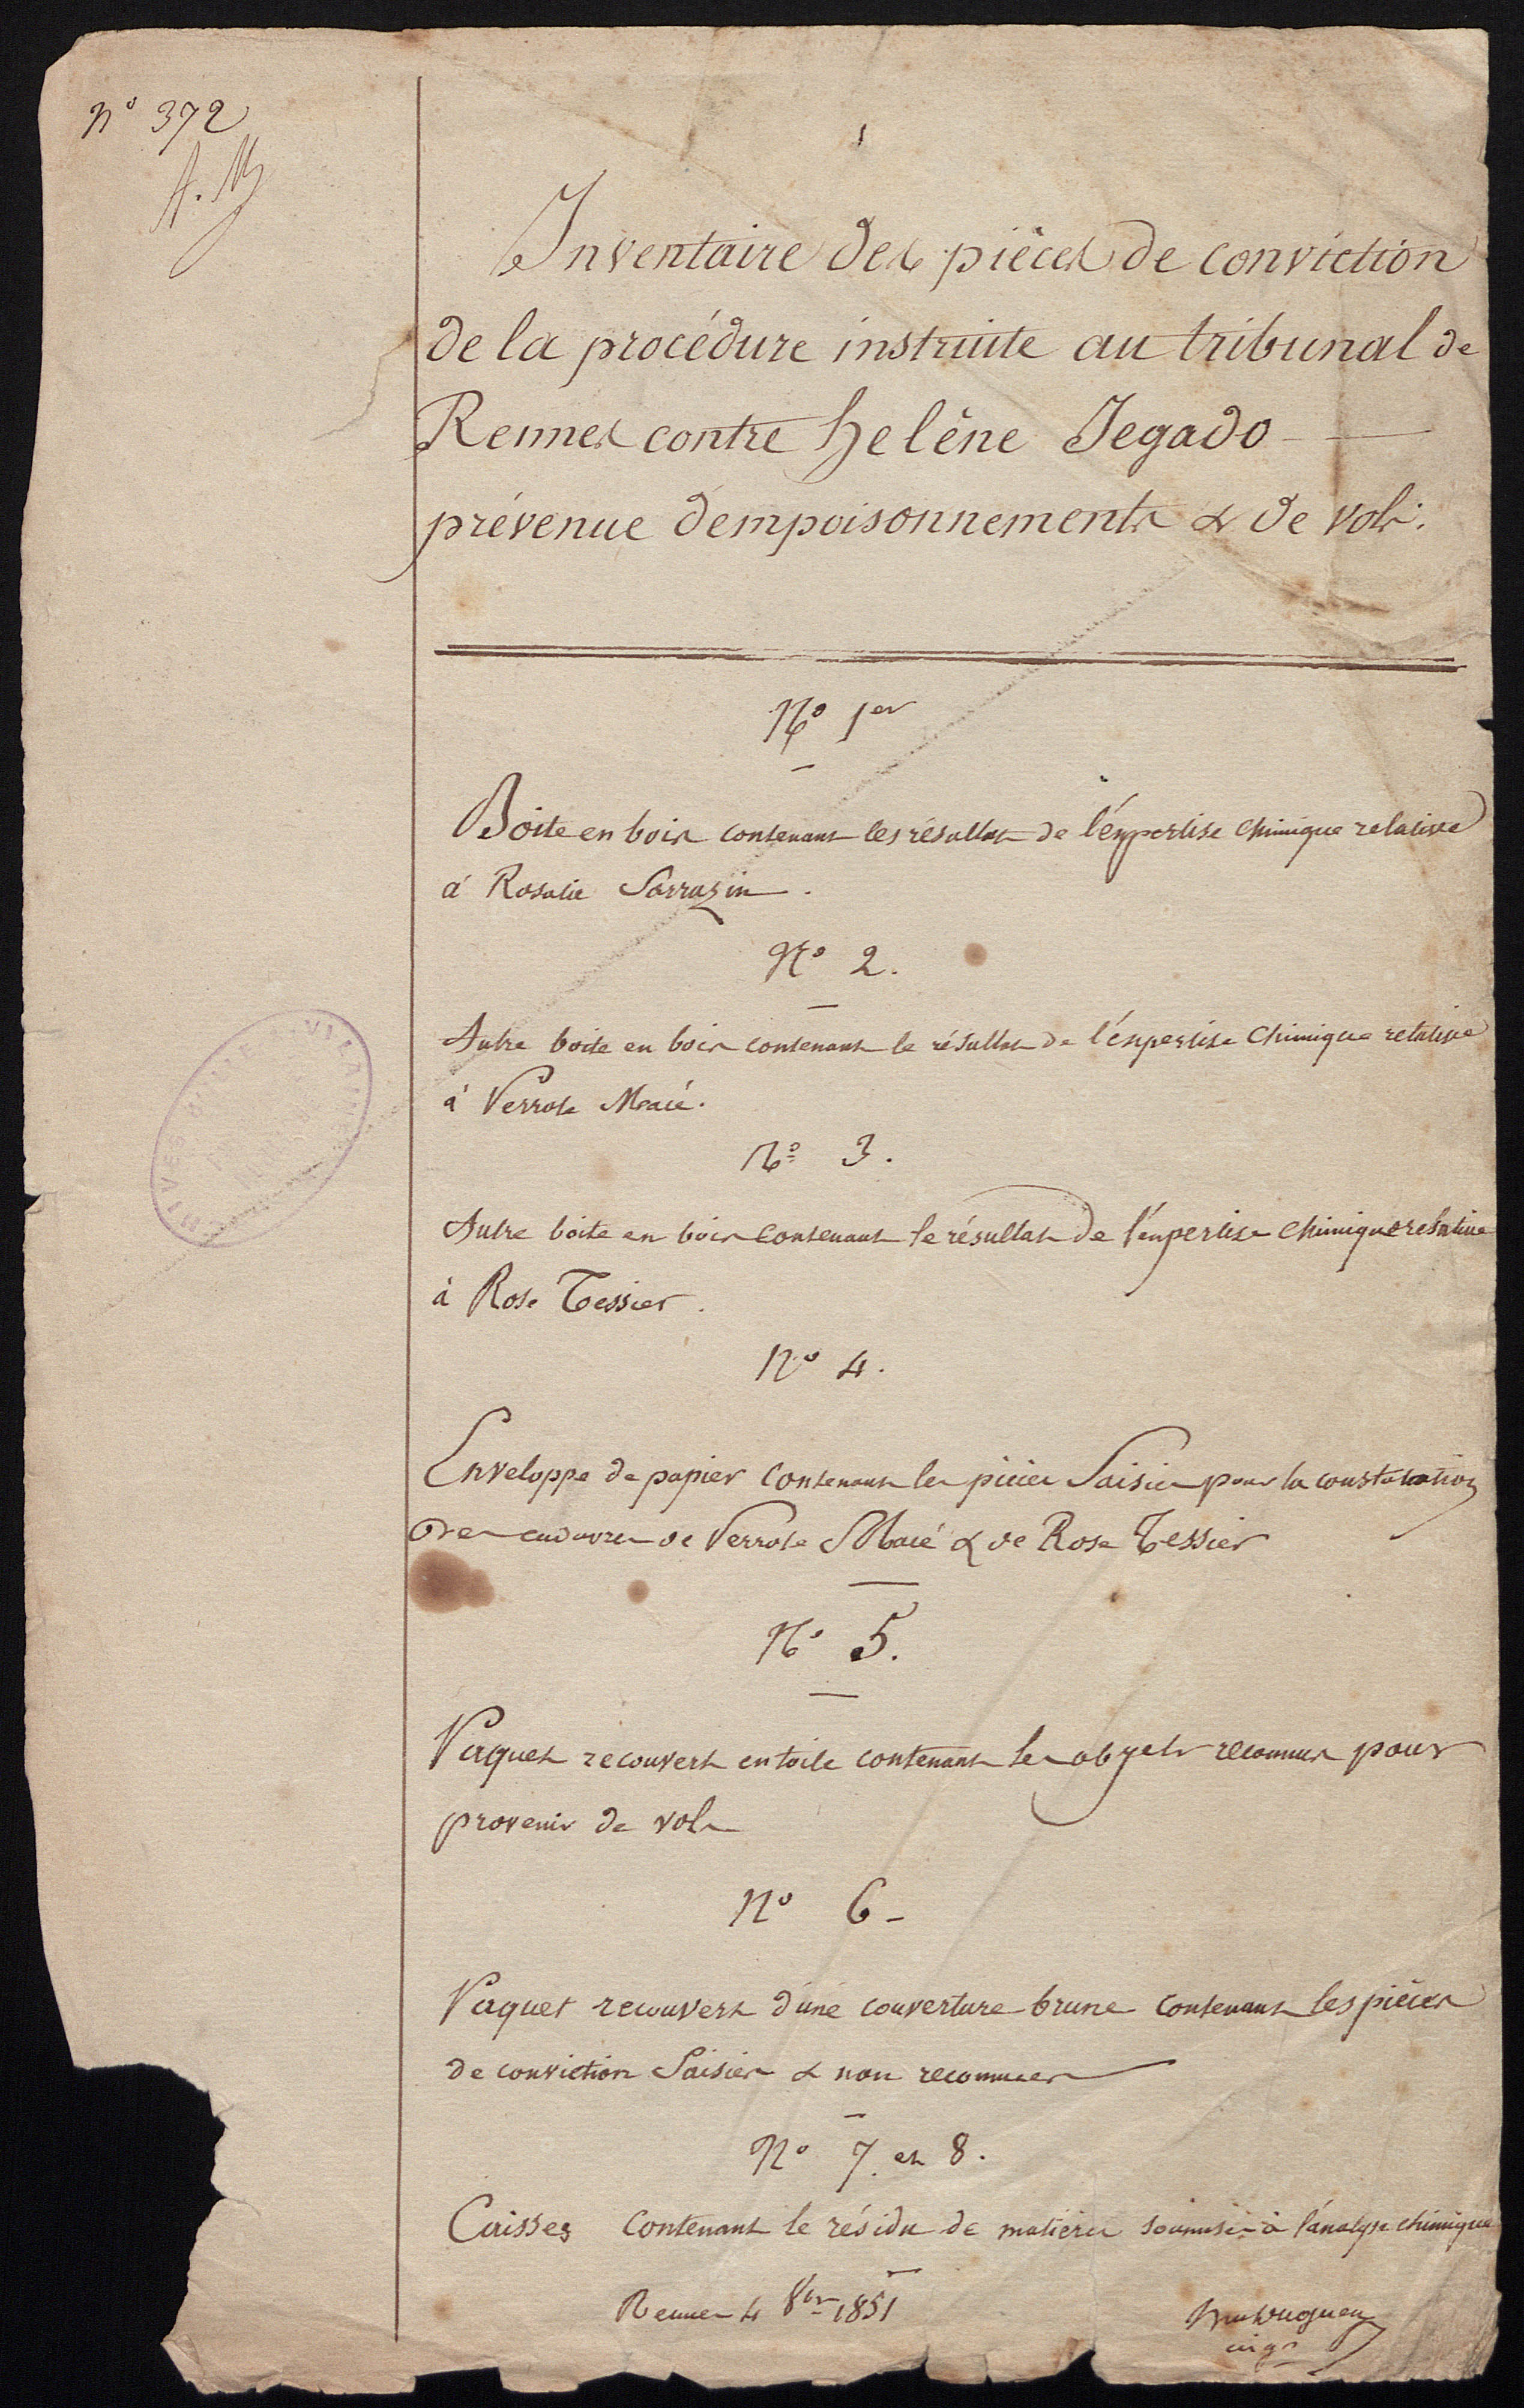 n° 372
A. M
1
Inventaire des pièces de conviction
de la procédure instruite au tribunal de
Rennes contre helène Jegado
prévenue d'empoisonnements & de vols.
N° 1er
Boite en bois contenant les résultats de l'éxpertise chimique relative
à Rosalie Sarrazin.
N° 2.
Autre boite en bois contenant le résultat de l'éxpertise Chimique relative
à Perrote Macé.
N° 3.
Autre boite en bois contenant le résultat de l'expertise chimique relative
à Rose Tessier.
N° 4.
Enveloppe de papier contenant les pièces Saisies pour la constatation
des cadavres de Perrote Macé & de Rose Tessier
N° 5.
Paquet recouvert en toile contenant les objets reconnus pour
provenir de vols
N° 6 -
Paquet recouvert d'une couverture brune contenant les pièces
de conviction Saisies & non reconnues
N° 7. et 8.
Caisses contenant le résidu de matières soumises à l'analyse chimique
Rennes 4 8bre 1851